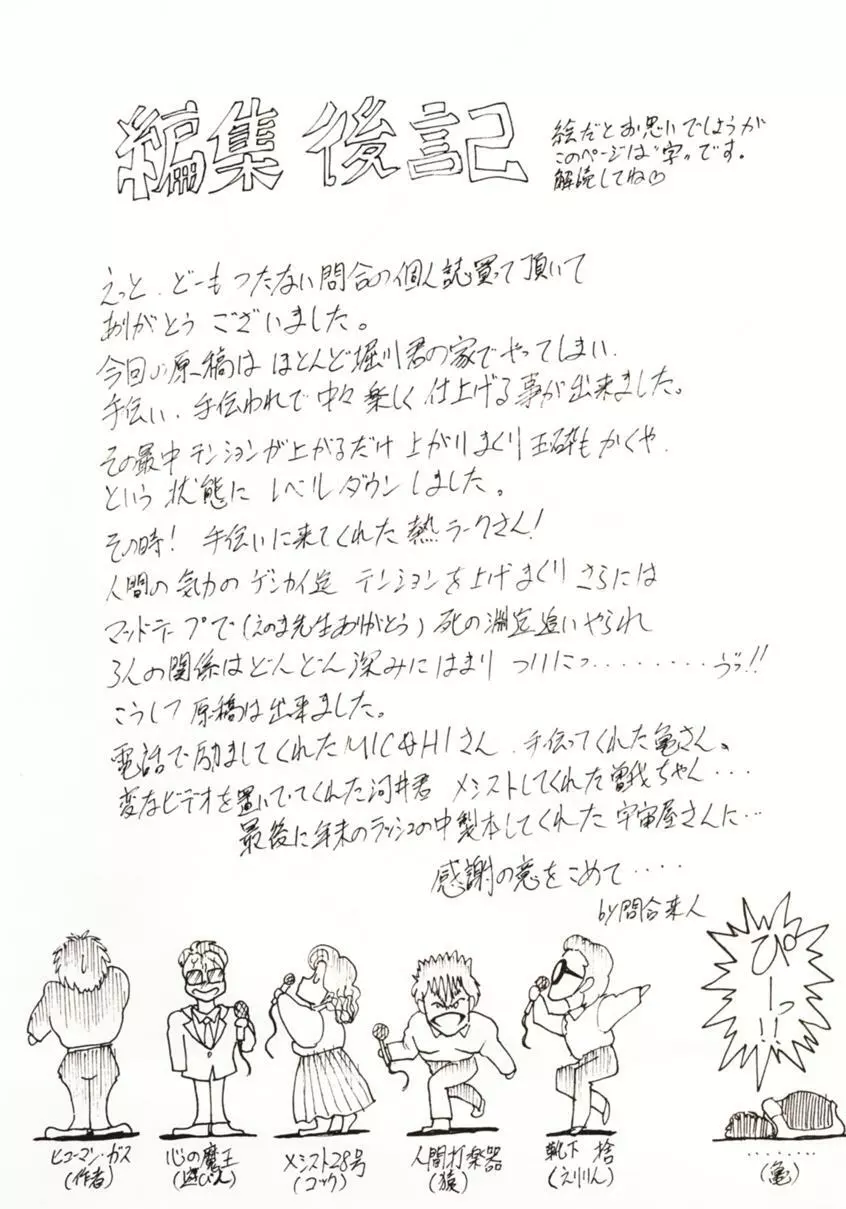 編集後記
絵だとお思いでしょうが
このページは〝字〟です。
解読してね♡
えっと、どーもつたない問合の個人誌買って頂いて
ありがとうございました。
今回の原稿はほとんど堀川君の家でやってしまい、
手伝い、手伝われで中々楽しく仕上げる事が出来ました。
その最中テンションが上がるだけ上がりまくり玉砕もかくや、
という状態にレベルダウンしました。
その時！手伝いに来てくれた熱ラークさん！
人間の気力のゲンカイ迄テンションを上げまくりさらには
マッドテープで(えのま先生ありがとう)死の淵迄追いやられ
3人の関係はどんどん深みにはまりついにっ‥‥‥‥ゔっ!!
こうして原稿は出来ました。
電話で励ましてくれたMICHIさん、手伝ってくれた亀さん、
変なビデオを置いてってくれた河井君 メシストしてくれた曽我ちゃん‥‥
最後に年末のラッシュの中製本してくれた宇宙屋さんに‥‥
感謝の意をこめて‥‥
by 問合来人
ぴーっ!!
ヒューマン・ガス
(作者)
心の魔王
(遊びん)
メシスト28号
(コック)
人間打楽器
(猿)
靴下 捨
(えりりん)
‥‥‥‥
(亀)